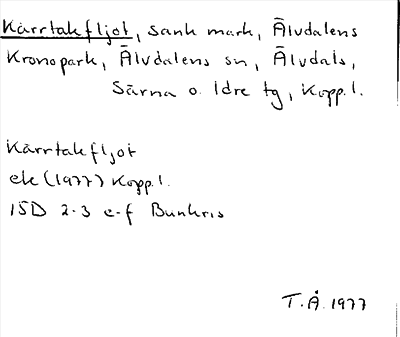 Kärrtakfljot, sank mark, Älvdalens
Kronopark, Älvdalens sn, Älvdals,
Särna o. Idre tg, Kopp.l.
Kärrtakfljot
ek (1977) Kopp.l.
15D 2-3 e-f Bunkris
T.Å. 1977